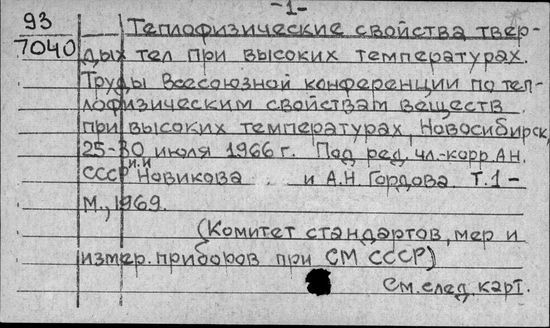 -1-
93
7040
Теплофизические свойства твер-
дых тел при высоких температурах.
Труды Всесоюзной конференции по теп-
лофизическим свойствам веществ
при высоких температурах, Новосибирск,
25-30 июля 1966 г. Под ред. чл.-корр. АН.
СССР И.И. Новикова и А.Н. Гордова. Т.1-
М., 1969.
(Комитет стандартов, мер и
измер. приборов при СМ СССР)
См. след. карт.